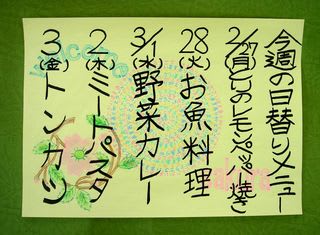 今週の日替りメニュー
2/27(月)とりのレモンペッパー焼き
28(火)お魚料理
3/1(水)野菜カレー
2(木)ミートパスタ
3(金)トンカツ
Welcome
Sakura